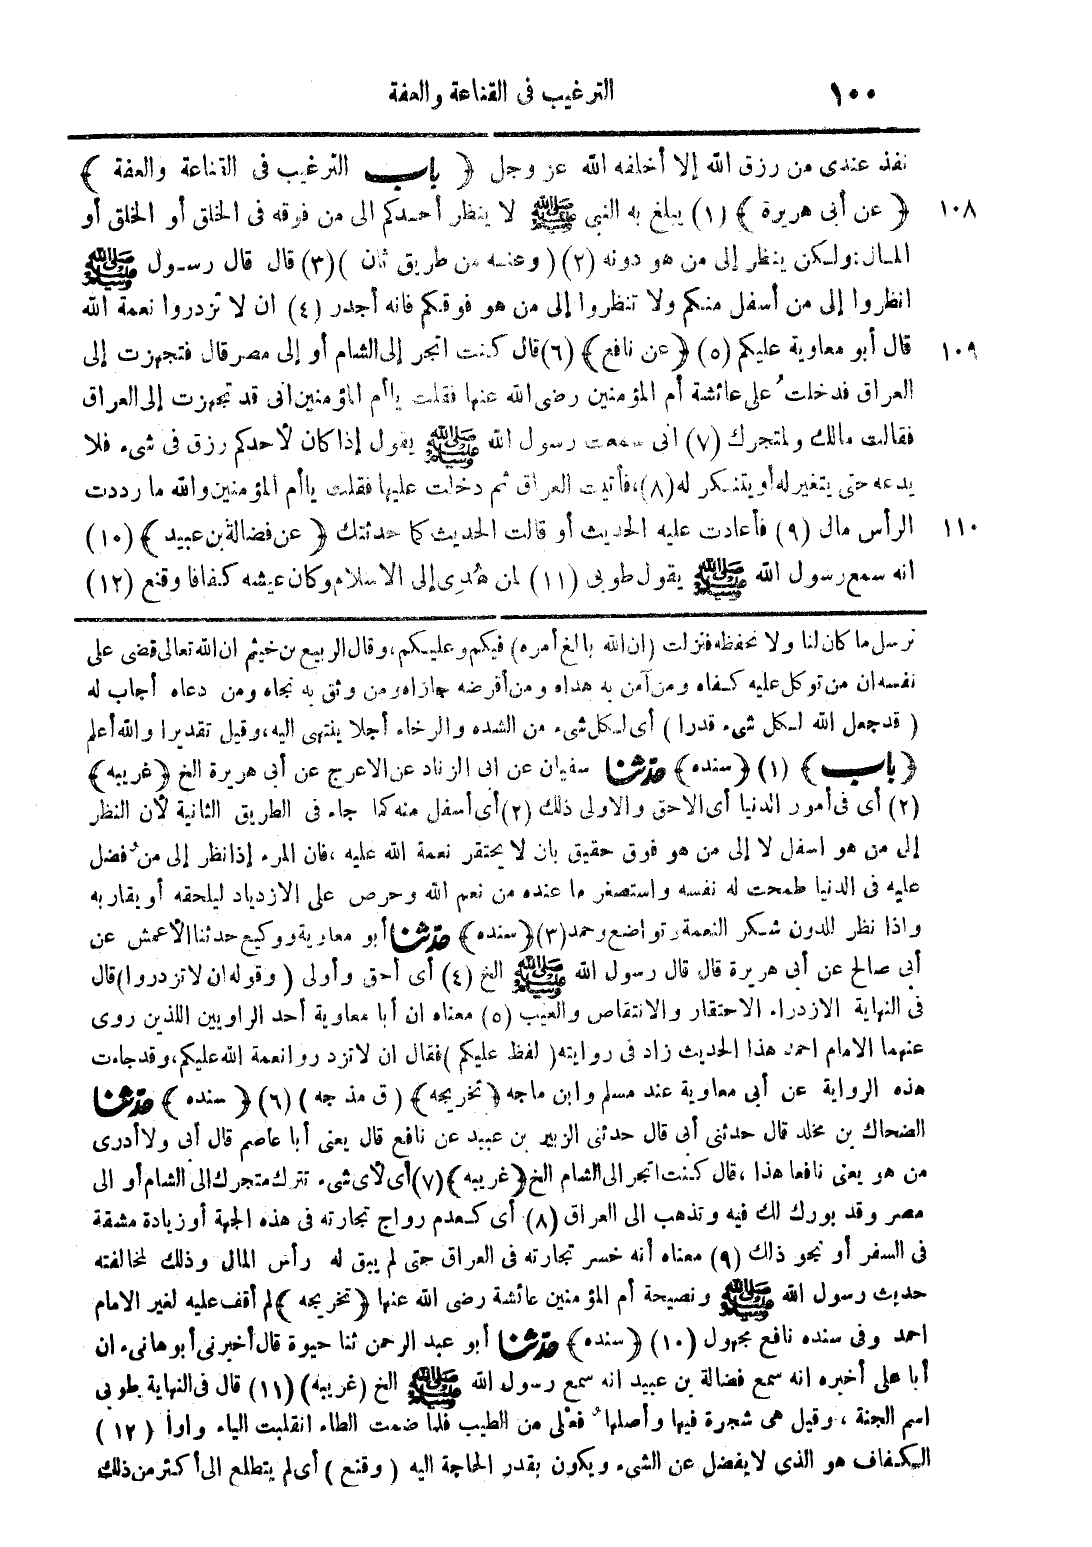 ١٠٠ الترغيب فى القناعة والعفة
نفذ عندى من رزق الله إلا أخلفه الله عز وجل ﴿ باب الترغيب فى القناعة والعفة ﴾
١٠٨ ﴿ عن أبى هريرة ﴾ (١) يبلغ به النبى ﷺ لا ينظر أحدكم الى من فوقه فى الخلق أو الخلق أو
المال:ولكن ينظر إلى من هو دونه (٢) ( وعنه من طريق ثان ) (٣) قال قال رسول ﷺ
انظروا إلى من أسفل منكم ولا تنظروا إلى من هو فوقكم فانه أجدر (٤) ان لا تزدروا نعمة الله
١٠٩ قال أبو معاوية عليكم (٥) ﴿عن نافع﴾ (٦) قال كنت اتجر إلى الشام أو إلى مصر قال فتجهزت إلى
العراق فدخلت على عائشة أم المؤمنين رضى الله عنها فقلت ياأم المؤمنين انى قد تجهزت إلى العراق
فقالت مالك ولمتجرك (٧) انى سمعت رسول الله ﷺ يقول إذا كان لأحدكم رزق فى شىء فلا
يدعه حتى يتغير له أو يتنكر له (٨)،فأتيت العراق ثم دخلت عليها فقلت ياأم المؤمنين والله ما رددت
١١٠ الرأس مال (٩) فأعادت عليه الحديث أو قالت الحديث كما حدثتك ﴿ عن فضالة بن عبيد ﴾ (١٠)
انه سمع رسول الله ﷺ يقول طوبى (١١) لمن هُدِى إلى الاسلام وكان عيشه كفافا وقنع (١٢)
ترسل ما كان لنا ولا نحفظه فنزلت (ان الله بالغ أمره) فيكم وعليكم،وقال الربيع بن خيثم ان الله تعالى قضى على
نفسه ان من توكل عليه كفاه ومن آمن به هداه ومن أقرضه جازاه ومن وثق به نجاه ومن دعاه أجاب له
( قد جعل الله لكل شىء قدرا ) أى لكل شىء من الشده والرخاء أجلا ينتهى اليه،وقيل تقديرا والله أعلم
﴿باب﴾ (١) ﴿سنده﴾ حدثنا سفيان عن ابى الزناد عن الاعرج عن أبى هريرة الخ ﴿غريبه﴾
(٢) أى فى أمور الدنيا أى الاحق والاولى ذلك (٢) أى أسفل منه كما جاء فى الطريق الثانية لأن النظر
إلى من هو اسفل لا إلى من هو فوق حقيق بان لا يحتقر نعمة الله عليه ،فان المرء إذا نظر إلى من فُضل
عليه فى الدنيا طمحت له نفسه واستصغر ما عنده من نعم الله وحرص على الازدياد ليلحقه أو يقاربه
واذا نظر للدون شكر النعمة وتواضع وحمد (٣) ﴿سنده﴾ حدثنا أبو معاوية ووكيع حدثنا الأعمش عن
أبى صالح عن أبى هريرة قال قال رسول الله ﷺ الخ (٤) أى أحق وأولى ( وقوله ان لا تزدروا) قال
فى النهاية الازدراء الاحتقار والانتقاص والعيب (٥) معناه ان أبا معاوية أحد الراويين اللذين روى
عنهما الامام احمد هذا الحديث زاد فى روايته ( لفظ عليكم ) فقال ان لا تزدروا نعمة الله عليكم،وقد جاءت
هذه الرواية عن أبى معاوية عند مسلم وابن ماجه ﴿تخريجه﴾ ( ق مذ جه ) (٦) ﴿ سنده ﴾ حدثنا
الضحاك بن مخلد قال حدثنى أبى قال حدثنى الزبير بن عبيد عن نافع قال يعنى أبا عاصم قال أبى ولا أدرى
من هو يعنى نافعا هذا ،قال كنت اتجر الى الشام الخ ﴿غريبه﴾ (٧) أى لأى شىء تترك متجرك الى الشام أو الى
مصر وقد بورك لك فيه وتذهب الى العراق (٨) أى كعدم رواج تجارته فى هذه الجهة أو زيادة مشقة
فى السفر أو نحو ذلك (٩) معناه أنه خسر تجارته فى العراق حتى لم يبق له رأس المال وذلك لمخالفته
حديث رسول الله ﷺ ونصيحة أم المؤمنين عائشة رضى الله عنها ﴿تخريجه﴾ لم أقف عليه لغير الامام
احمد وفى سنده نافع مجهول (١٠) ﴿سنده﴾ حدثنا أبو عبد الرحمن ثنا حيوة قال أخبرنى أبو هانىء ان
أبا على أخبره انه سمع فضالة بن عبيد انه سمع رسول الله ﷺ الخ (غريبه) (١١) قال فى النهاية طوبى
اسم الجنة ، وقيل هى شجرة فيها وأصلها فُعْلى من الطيب فلما ضمت الطاء انقلبت الياء واوا (١٢)
الكفاف هو الذى لا يفضل عن الشىء ويكون بقدر الحاجة اليه ( وقنع ) أى لم يتطلع الى أكثر من ذلك